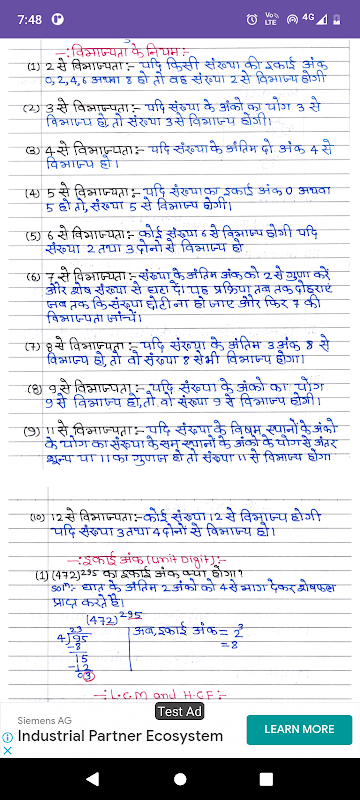 7:48
Vo)) LTE 4G
-:विभाज्यता के नियम:-
(1) 2 से विभाज्यता:- यदि किसी संख्या की इकाई अंक
0,2,4,6 अथवा 8 हो तो वह संख्या 2 से विभाज्य होगी
(2) 3 से विभाज्यता:- यदि संख्या के अंको का योग 3 से
विभाज्य हो, तो संख्या 3 से विभाज्य होगी।
(3) 4 से विभाज्यता:- यदि संख्या के अंतिम दो अंक 4 से
विभाज्य हो।
(4) 5 से विभाज्यता:- यदि संख्या का इकाई अंक 0 अथवा
5 हो तो, संख्या 5 से विभाज्य होगी।
(5) 6 से विभाज्यता:- कोई संख्या 6 से विभाज्य होगी यदि
संख्या 2 तथा 3 दोनो से विभाज्य हो
(6) 7 से विभाज्यता:- संख्या के अंतिम अंक को 2 से गुणा करें
और शेष संख्या से घटा दे। यह प्रक्रिया तब तक दोहराएं
जब तक कि संख्या छोटी ना हो जाए और फिर 7 की
विभाज्यता जांचें।
(7) 8 से विभाज्यता:- यदि संख्या के अंतिम 3 अंक 8 से
विभाज्य हो, तो वो संख्या 8 से भी विभाज्य होगा।
(8) 9 से विभाज्यता:- यदि संख्या के अंको का योग
9 से विभाज्य हो, तो वो संख्या 9 से विभाज्य होगी।
(9) 11 से विभाज्यता:- यदि संख्या के विषम स्थानों के अंको
के योग का संख्या के सम स्थानों के अंको के योग से अंतर
शून्य या 11 का गुणज हो तो संख्या 11 से विभाज्य होगा
(10) 12 से विभाज्यता:- कोई संख्या 12 से विभाज्य होगी
यदि संख्या 3 तथा 4 दोनों से विभाज्य हो।
-:इकाई अंक (Unit Digit):-
(1) (472)²⁹⁵ का इकाई अंक क्या होगा?
solⁿ:- घात के अंतिम 2 अंको को 4 से भाग देकर शेषफल
प्राप्त करते है।
(472)²⁹⁵
23
4)95 अब, इकाई अंक = 2³
-8 = 8
15
-12
03
-:L.C.M and H.C.F:-
Test Ad
Siemens AG
Industrial Partner Ecosystem
LEARN MORE